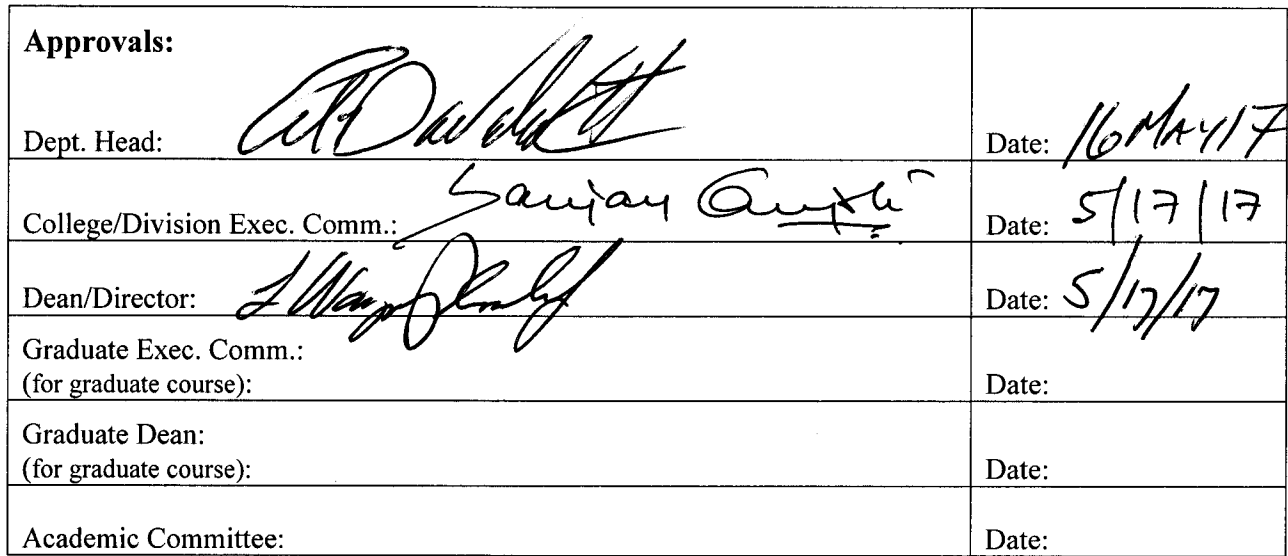 Approvals:
Dept. Head: Date: 16 MAY 17
College/Division Exec. Comm.: Sanjay Date: 5/17/17
Dean/Director: Date: 5/17/17
Graduate Exec. Comm.:
(for graduate course): Date:
Graduate Dean:
(for graduate course): Date:
Academic Committee: Date: